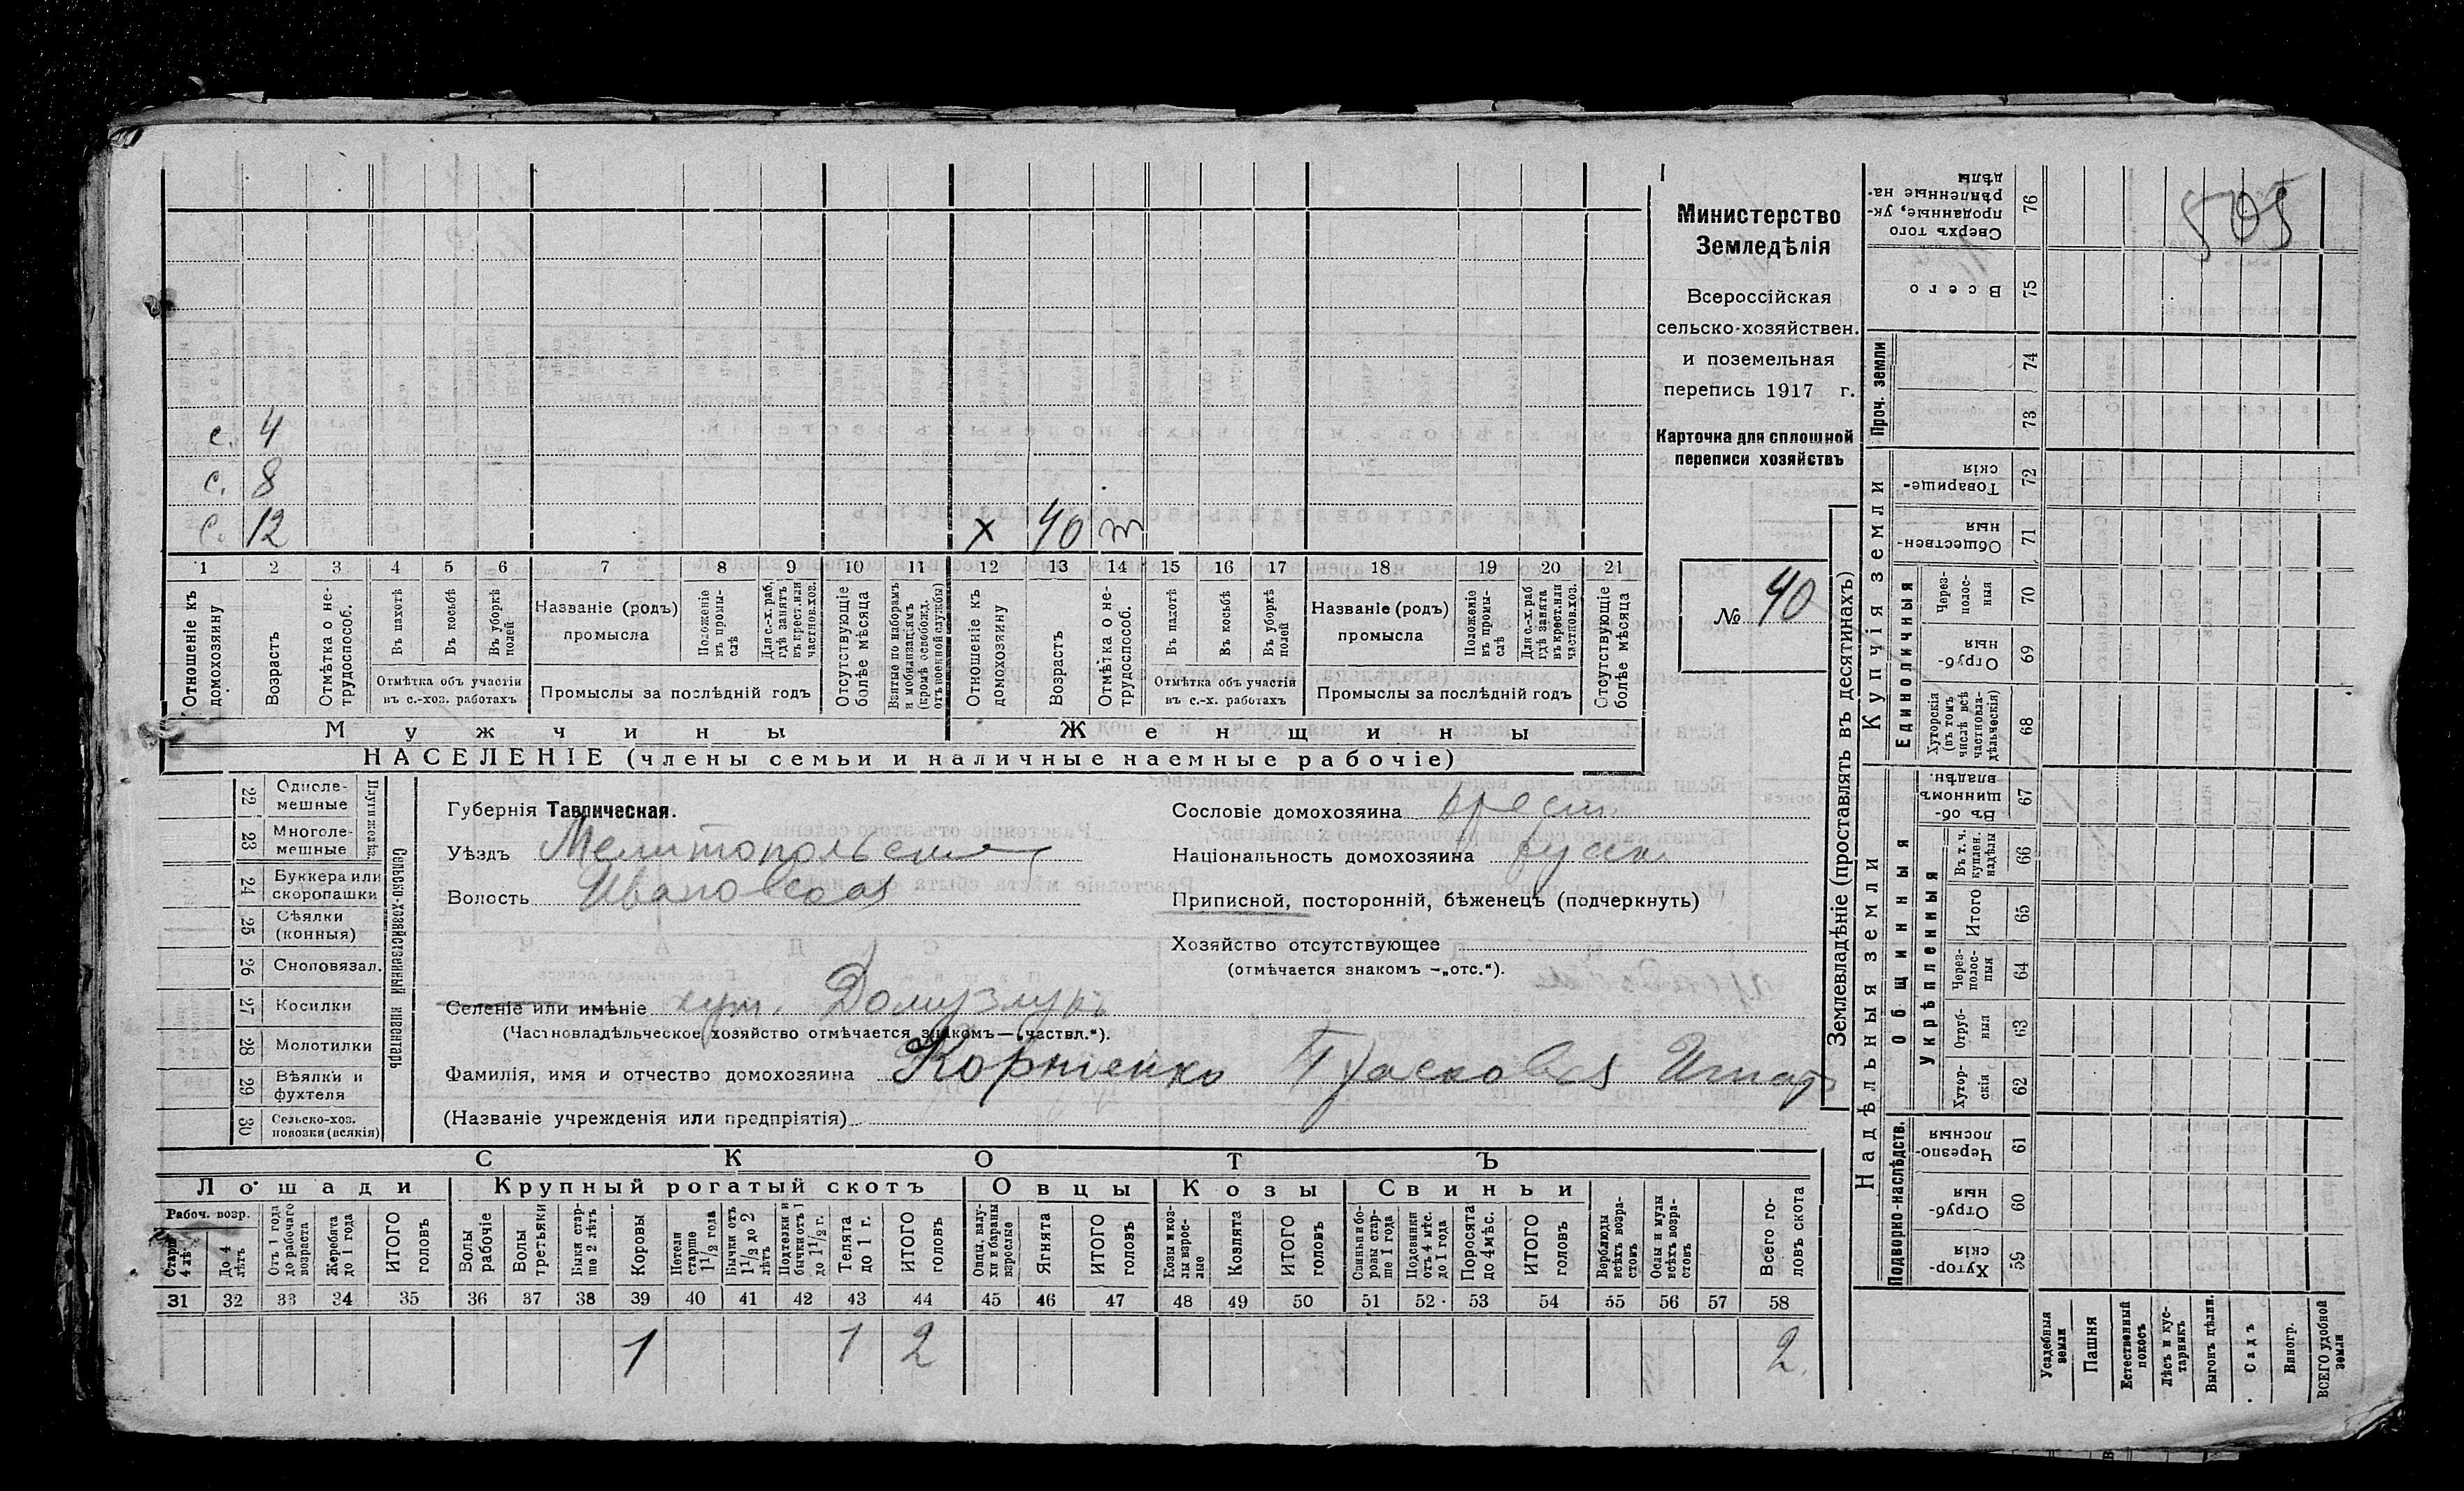 505
Министерство
Земледѣлія
Всероссійская
сельско-хозяйствен.
и поземельная
перепись 1917 г.
Карточка для сплошной
переписи хозяйствъ
№ 40
с. 4
с. 8
с. 12 х 40
1 2 3 4 5 6 7 8 9 10 11 12 13 14 15 16 17 18 19 20 21
Отношеніе къ домохозяину
Возрастъ
Отмѣтка о не-трудоспособ.
Въ пахотѣ
Въ косьбѣ
Въ уборкѣ полей
Отмѣтка объ участіи
въ с.-хоз. работахъ
Названіе (родъ)
промысла
Положеніе въ промы-слѣ
Для с.-х. раб. гдѣ занятъ въ крест. или частнов. хоз.
Промыслы за послѣдній годъ
Отсутствующіе болѣе мѣсяца
Взятые по наборамъ и мобилизаціямъ (кромѣ освобожд. отъ военной службы)
Отношеніе къ домохозяину
Возрастъ
Отмѣтка о не-трудоспособ.
Въ пахотѣ
Въ косьбѣ
Въ уборкѣ полей
Отмѣтка объ участіи
въ с.-х. работахъ
Названіе (родъ)
промысла
Положеніе въ промы-слѣ
Для с.-х. раб. гдѣ занята въ крест. или частнов. хоз.
Промыслы за послѣдній годъ
Отсутствующіе болѣе мѣсяца
Мужчины Женщины
НАСЕЛЕНІЕ (члены семьи и наличные наемные рабочіе)
22 Одноле-мешные
23 Многоле-мешные
24 Буккера или скоропашки
25 Сѣялки (конныя)
26 Сноповязал.
27 Косилки
28 Молотилки
29 Вѣялки и фухтеля
30 Сельско-хоз. повозки (всякія)
Сельско-хозяйственный инвентарь
Губернія Таврическая.
Уѣздъ Мелитопольскій
Волость Ивановская
Селеніе или имѣніе хут. Домузлукъ
(Частновладѣльческое хозяйство отмѣчается знакомъ—„частвл.“).
Фамилія, имя и отчество домохозяина Корніенко
(Названіе учрежденія или предпріятія)
Сословіе домохозяина крест.
Національность домохозяина русск.
Приписной, посторонній, бѣженецъ (подчеркнуть)
Хозяйство отсутствующее
(отмѣчается знакомъ —„отс.“).
СКОТЪ
Лошади Крупный рогатый скотъ Овцы Козы Свиньи
Рабоч. возр.
Старше 4 лѣтъ
До 4 лѣтъ
Отъ 1 года до рабочаго возраста
Жеребята до 1 года
ИТОГО головъ
Волы рабочіе
Волы третьяки
Быки стар-ше 2 лѣтъ
Коровы
Нетели старше 1½ года
Бычки отъ 1½ до 2 лѣтъ
Подтелки и бычки отъ 1 до 1½ г.
Телята до 1 г.
ИТОГО головъ
Овцы, валу-хи и бараны взрослые
Ягнята
ИТОГО головъ
Козы и коз-лы взрос-лые
Козлята
ИТОГО головъ
Свиньи и бо-ровы стар-ше 1 года
Подсвинки отъ 4 мѣс. до 1 года
Поросята до 4 мѣс.
ИТОГО головъ
Верблюды всѣхъ возра-стовъ
Ослы и мулы всѣхъ возра-стовъ
Всего го-ловъ скота
31 32 33 34 35 36 37 38 39 40 41 42 43 44 45 46 47 48 49 50 51 52 53 54 55 56 57 58
1 1 2 2
Землевладѣніе (проставлять въ десятинахъ)
Надѣльныя земли
Купчія земли
Проч. земли
Подворно-наслѣдств.
Общинныя
Укрѣпленныя
Единоличныя
Сверхъ того проданные, ук-рѣпленные на-дѣлы 76
Всего 75
74
73
Товарище-скія 72
Обществен-ныя 71
Через-полос-ныя 70
Отруб-ныя 69
Хуторскія (въ томъ числѣ всѣ частновла-дѣльческія) 68
Въ об-щинномъ владѣн. 67
Въ т. ч. куплен. надѣлы 66
Итого 65
Через-полос-ныя 64
Отруб-ныя 63
Хутор-скія 62
Черезпо-лосныя 61
Отруб-ныя 60
Хутор-скія 59
Усадебныя земли
Пашня
Естественный покосъ
Лѣсъ и кус-тарникъ
Выгонъ цѣлин.
Садъ
Виногр.
ВСЕГО удобной земли